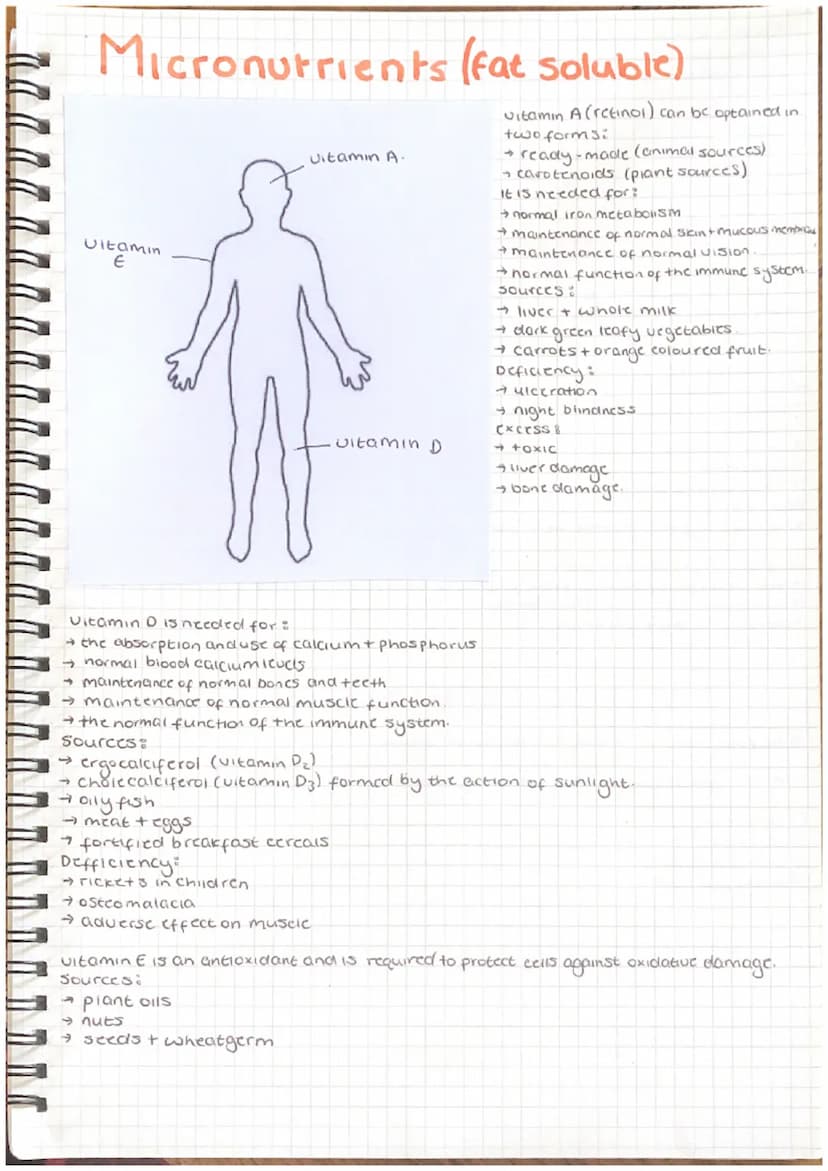 Micronutrients (fat soluble)
vitamin A.
vitamin
E
vitamin D
vitamin A (retinol) can be optained in
two forms:
→ ready-made (animal sources)
→ carotenoids (plant sources)
It is needed for:
→ normal iron metabolism
→ maintenance of normal skin + mucous membrane
→ maintenance of normal vision.
→ normal function of the immune system.
sources:
→ liver + whole milk
→ dark green leafy vegetables.
→ carrots + orange coloured fruit.
Deficiency:
→ ulceration
→ night blindness
excess:
→ toxic
→ liver damage
→ bone damage.
vitamin D is needed for:
→ the absorption and use of calcium + phosphorus
→ normal blood calcium levels
→ maintenance of normal bones and teeth
→ maintenance of normal muscle function.
→ the normal function of the immune system.
Sources:
→ ergocalciferol (vitamin D₂)
→ cholecalciferol (vitamin D₃) formed by the action of sunlight.
→ oily fish
→ meat + eggs
→ fortified breakfast cereals
Defficiency:
→ rickets in children
→ osteomalacia
→ adverse effect on muscle
vitamin E is an antioxidant and is required to protect cells against oxidative damage.
Sources:
→ plant oils
→ nuts
→ seeds + wheatgerm